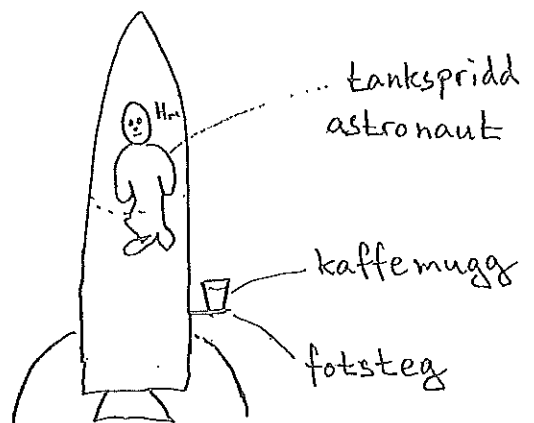 Hm
tankspridd
astronaut
kaffemugg
fotsteg